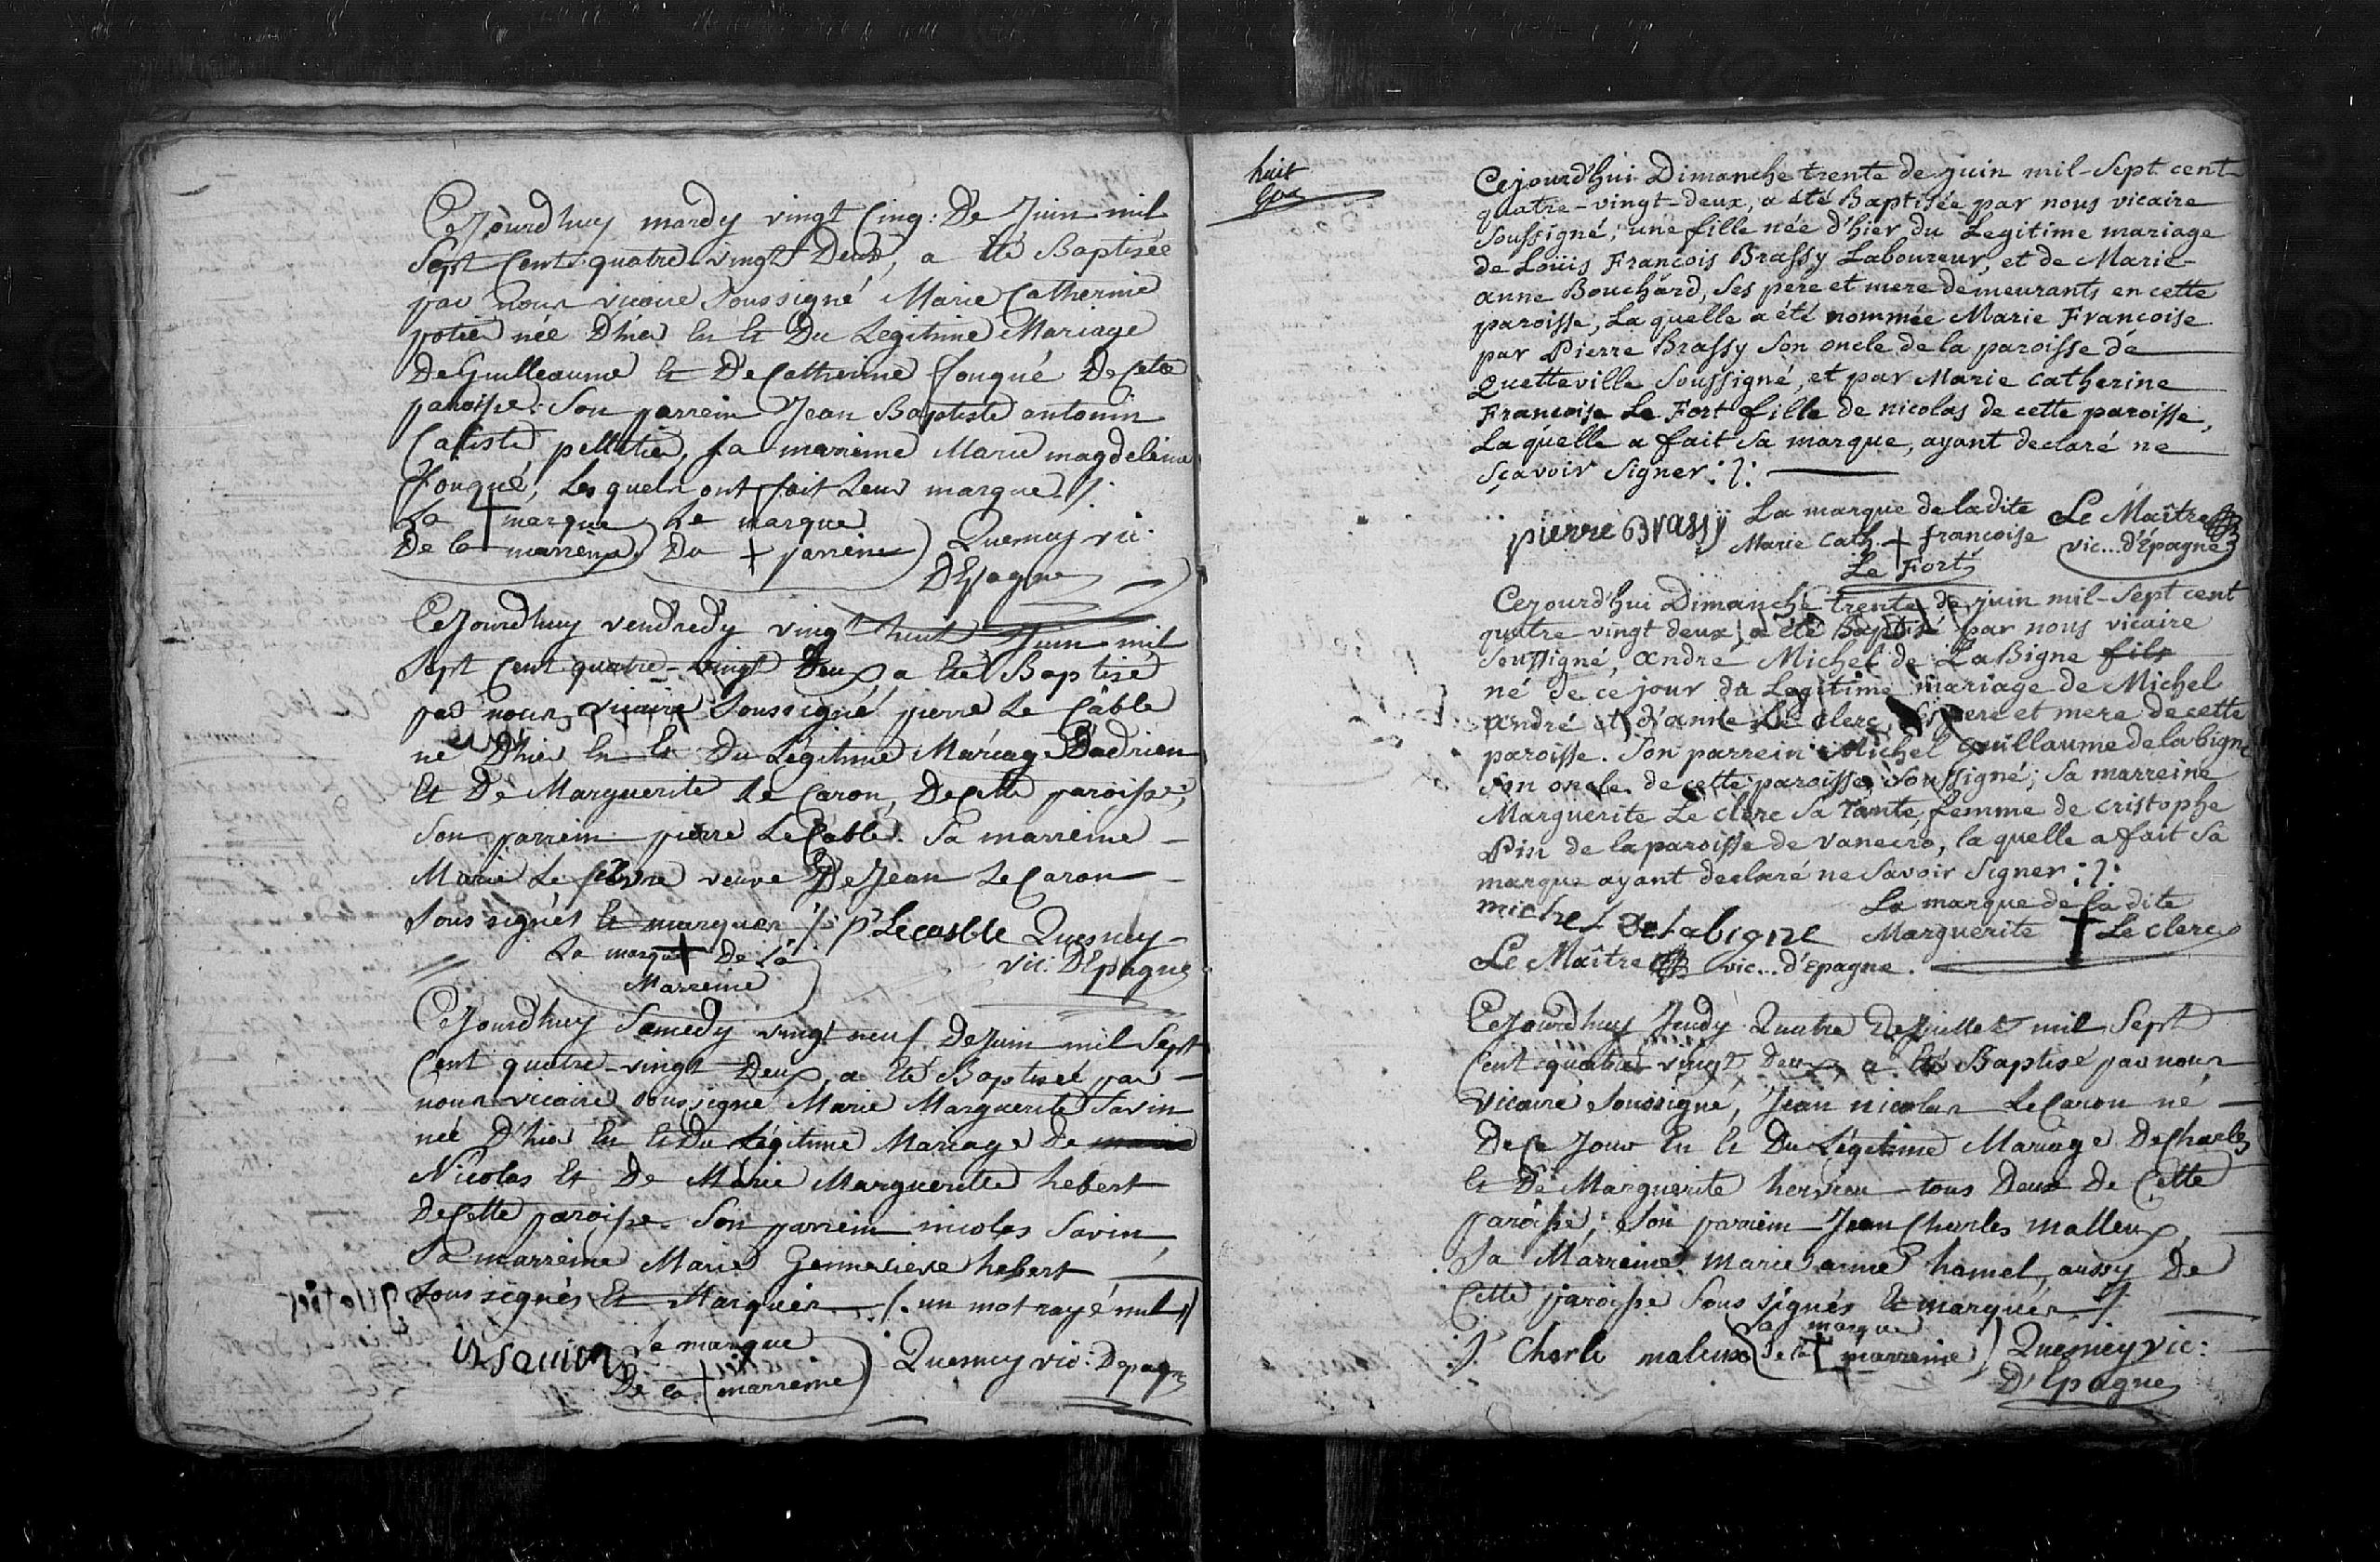 Cejourdhuy mardy vingt Cinq: De Juin mil
Sept Cent quatre vingt Deux, a été Baptisée
par nous vicaire soussigné Marie Catherine
potier née D'hier En Et Du Legitime Mariage
De Guilleaume Et De Catherine fouqué De Cette
paroisse. Son parrein Jean Baptiste antonin
Caliste pelletier, sa marreine Marie magdeleine
Fouqué, Les quels ont fait Leur marque ./.
La marque Le marque
De la marreine Du parrein Quesney vic:
D'Epagne
Cejourdhuy vendredy vingt huit Juin mil
Sept Cent quatre-vingt Deux a été Baptisé
par nous vicaire Soussigné pierre Le Câble
né D'hier En Et Du Légitime Mariage D'adrien
Et De Marguerite Le Caron, De Cette paroisse,
Son parrein pierre Le Câble. Sa marreine
Marie Le febvre veuve De Jean Le Caron
Sous signés Et marqués ./. pr Lecasble Quesney
La marque De La vic: D'Epagne
Marreine
Cejourdhuy Samedy vingt neuf De Juin mil Sept
Cent quatre-vingt Deux, a été Baptisée par
nous vicaire soussigné Marie Marguerite Savin
née D'hier En Et Du Légitime Mariage De
Nicolas Et De Marie Marguerite hebert
De Cette paroisse. Son parrein nicolas Savin,
Sa marreine Marie Gennevieve hebert
Sous signés Et Marqués ./. un mot rayé nul
Le marque
De la marreine Quesney vic: Depagne
huit
Cejourd'hui Dimanche trente de juin mil-Sept cent
quatre-vingt-deux, a été Baptisée par nous vicaire
Soussigné, une fille née d'hier du Legitime mariage
de Loüis Francois Brassy Laboureur, et de Marie-
anne Bouchard, Ses pere et mere demeurants en cette
paroisse, La quelle a été nommée Marie Francoise
par Pierre Brassy Son oncle de la paroisse de
Quetteville Soussigné, et par Marie catherine
Francoise Le Fort fille de nicolas de cette paroisse,
La quelle a fait Sa marque, ayant declaré ne
sçavoir Signer :/:
pierre Brassy La marque de ladite Le Maître
Marie Cath. francoise vic... d'Epagne
Le Fort
Cejourd'hui Dimanche trente de juin mil-Sept cent
quatre vingt deux, a été Baptisé par nous vicaire
Soussigné, andre Michel de LaBigne fils
né de ce jour du Legitime mariage de Michel
andré et d'anne Le clerc, Ses pere et mere de cette
paroisse. Son parrein Michel Guillaume de labigne
Son oncle de cette paroisse Soussigné; Sa marreine
Marguerite Le clerc Sa Tante, femme de cristophe
Pin de la paroisse de vanecro, la quelle a fait Sa
marque ayant declaré ne Savoir Signer :/:
michel delabigne La marque de la dite
Marguerite Le clerc
Le Maître vic... d'Epagne.
Cejourdhuy Jeudy Quatre De Juillet mil Sept
Cent quatre vingt Deux, a été Baptisé par nous
vicaire Soussigné, Jean nicolas Le Caron né
De Ce Jour En Et Du Légitime Mariage De Charles
Et De Marguerite hervieu tous Deux De Cette
paroisse; Son parrein Jean Charles malleux,
Sa Marreine Marie anne hamel, aussy De
Cette paroisse Sous signés Et marqués ./.
La marque
J. Charle maleux de la marreine Quesney vic:
D'Epagne